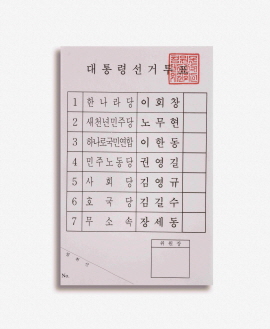 대통령선거투
1 한나라당 이회창
2 새천년민주당 노무현
3 하나로국민연합 이한동
4 민주노동당 권영길
5 사회당 김영규
6 호국당 김길수
7 무소속 장세동
위원장
No